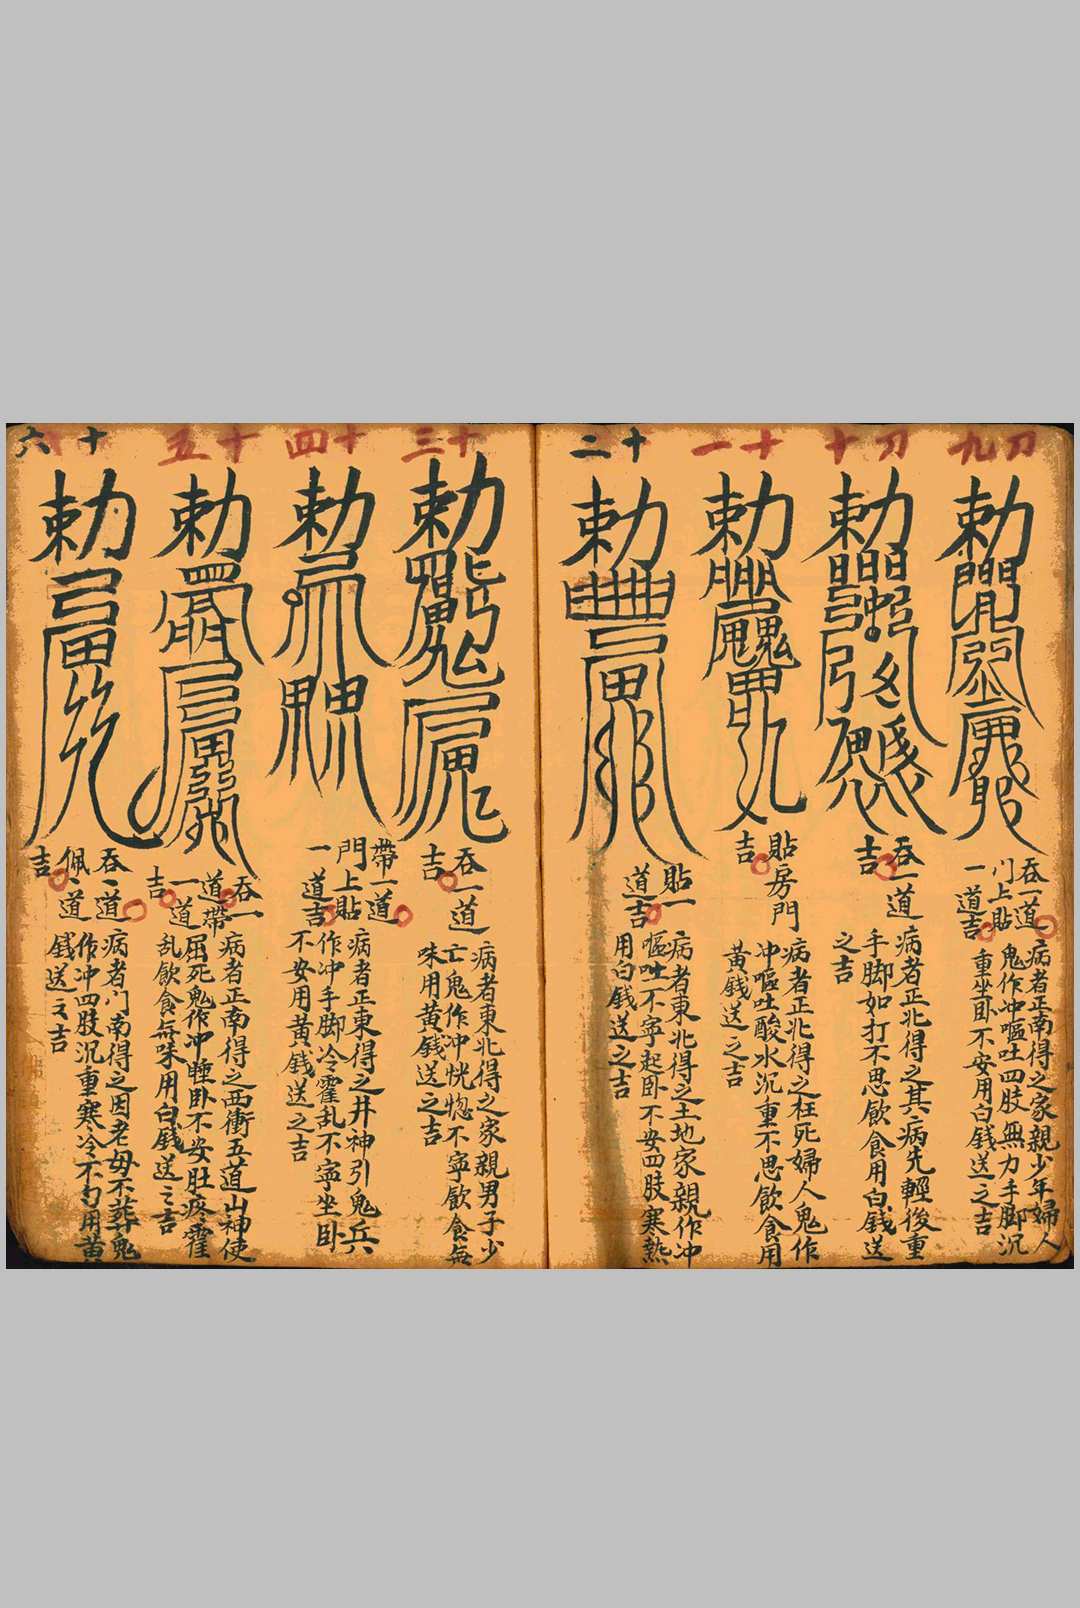 刀九
勅
吞一道
門上貼
一道吉
病者正南得之家親少年婦人
鬼作冲嘔吐四肢無力手脚沉
重坐卧不安用白錢送之吉
刀十
勅
吞一道
吉
病者正北得之其病先輕後重
手脚如打不思飲食用白錢送
之吉
十一
勅
貼房門
吉
病者正北得之枉死婦人鬼作
冲嘔吐酸水沉重不思飲食用
黃錢送之吉
十二
勅
貼一
道吉
病者東北得之土地家親作冲
嘔吐不寧起卧不安四肢寒熱
用白錢送之吉
十三
勅
吞一道
吉
病者東北得之家親男子少
亡鬼作冲恍惚不寧飲食無
味用黃錢送之吉
十四
勅
帶一道
門上貼
一道吉
病者正東得之井神引鬼兵
作冲手脚冷霍乱不寧坐卧
不安用黃錢送之吉
十五
勅
吞一
道帶
一道
吉
病者正南得之西衝五道山神使
屈死鬼作冲睡卧不安肚疼霍
乱飲食無味用白錢送之吉
十六
勅
吞一道
佩一道
吉
病者門南得之因老母不葬鬼
作冲四肢沉重寒冷不勻用黃
錢送之吉